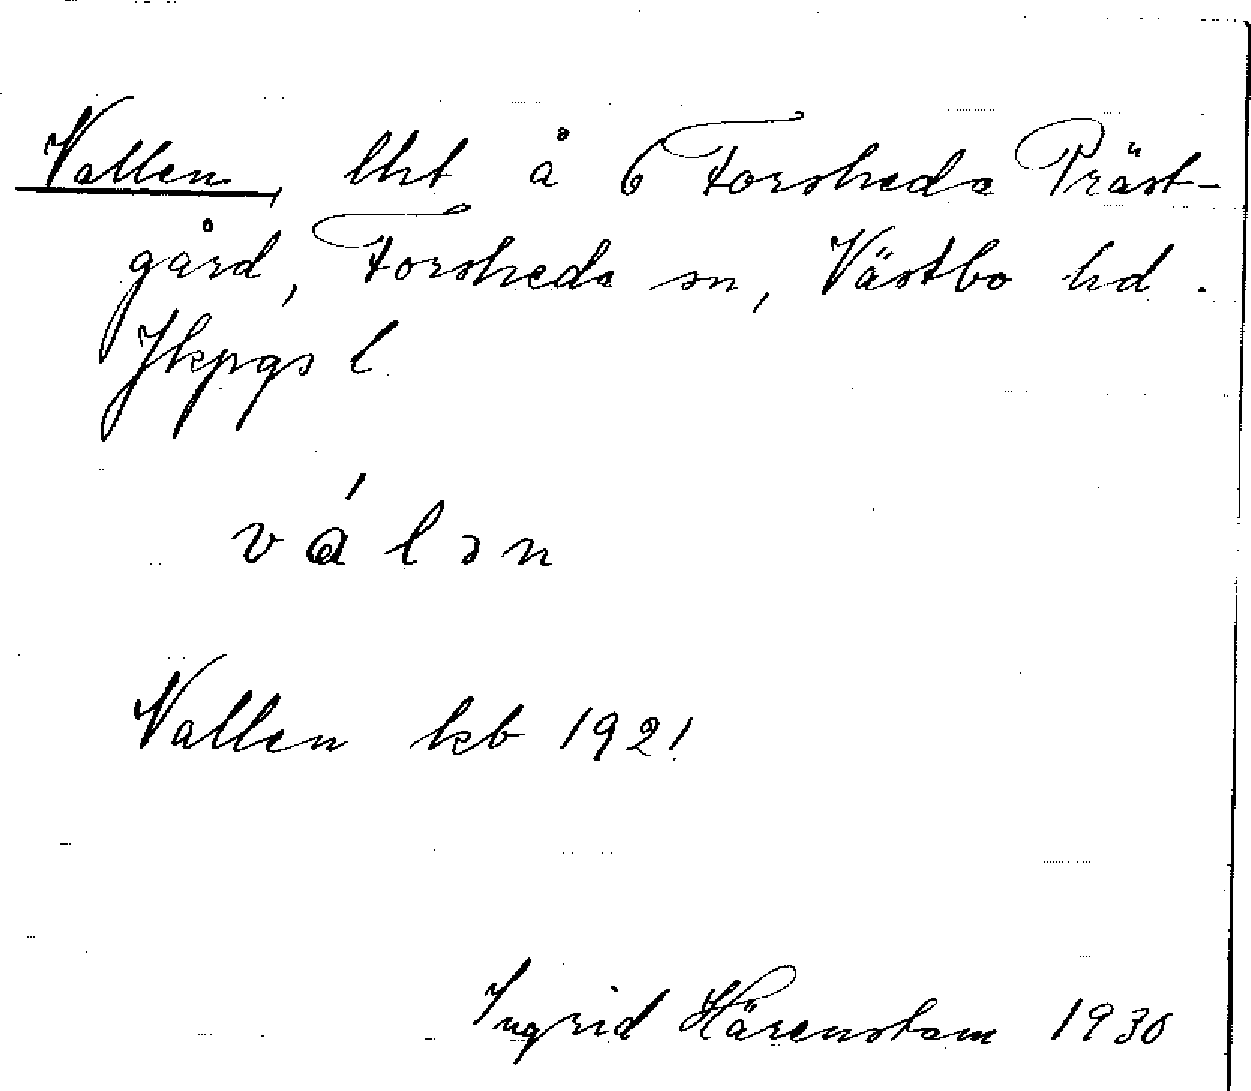 Vallen, lht å 6 Forsheda Präst-
gård, Forsheda sn, Västbo hd.
Jkpgs l.
válən
Vallen kb 1921
Ingrid Härenstam 1930